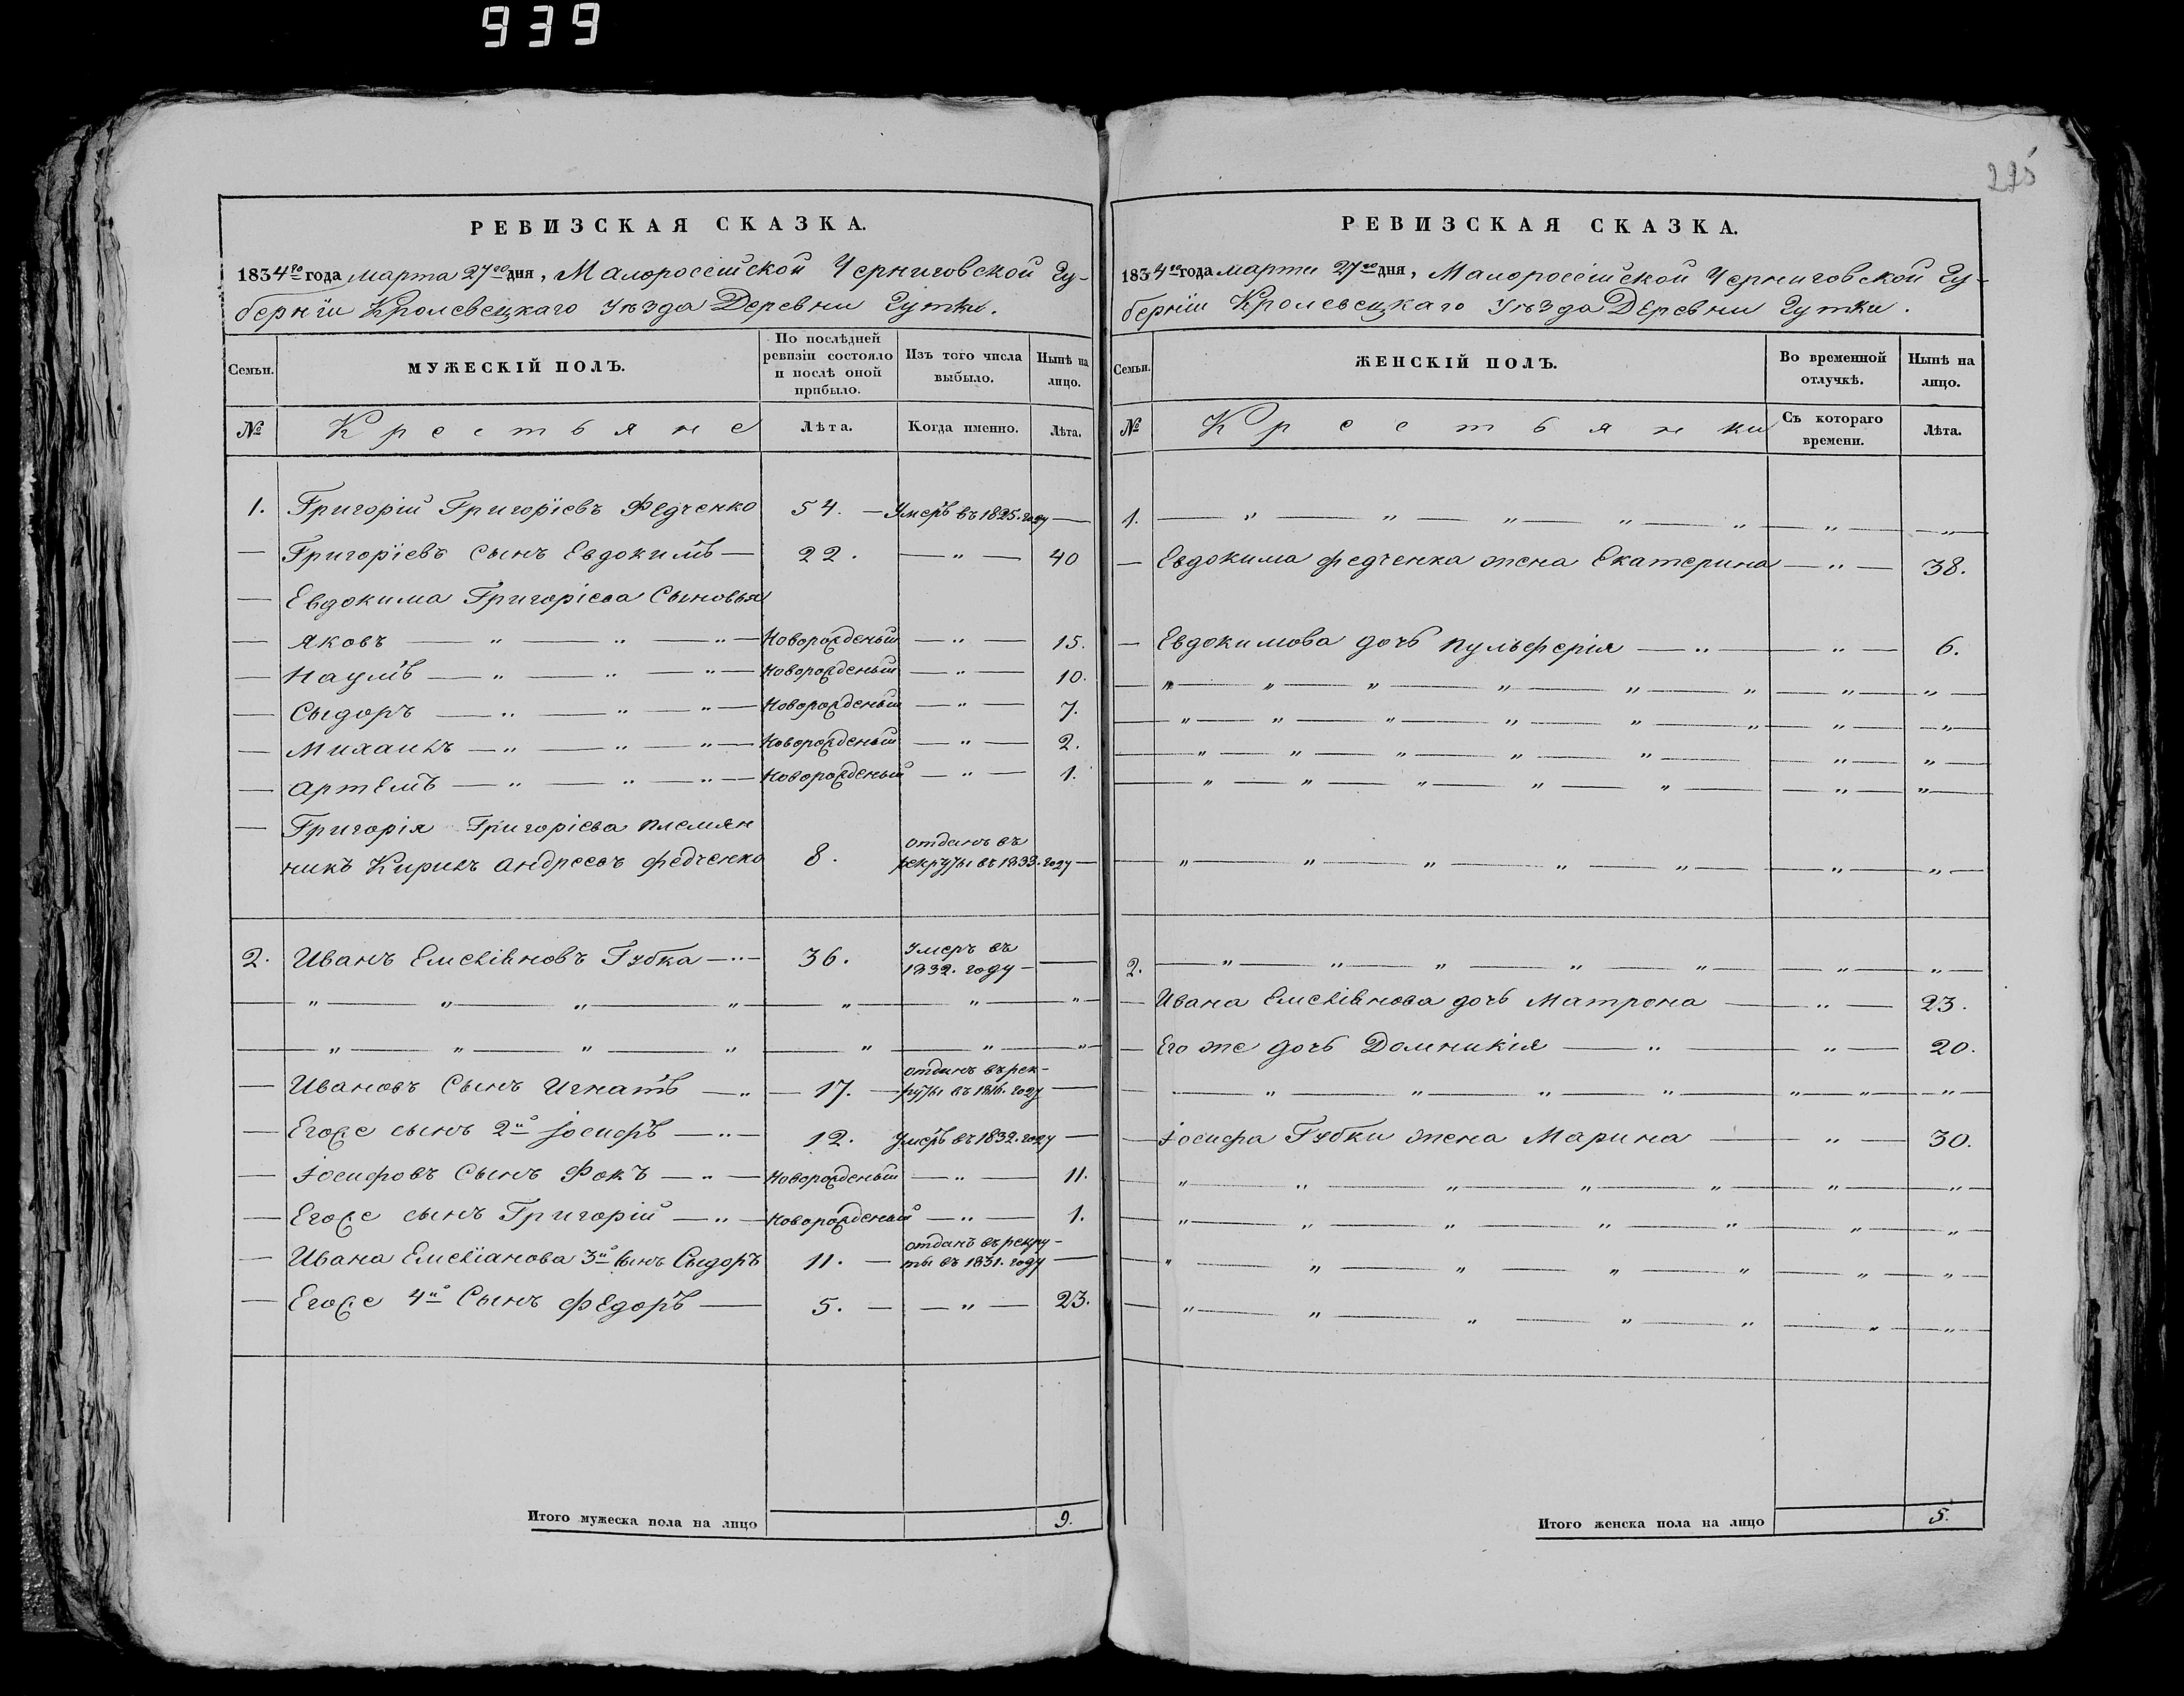 939
225
РЕВИЗСКАЯ СКАЗКА.
1834го года марта 27го дня, Малоросѣйской Черниговской Гу-
берніи Кролевецкаго Уѣзда Деревни Гутки.
Семьи. МУЖЕСКІЙ ПОЛЪ. По послѣдней ревизіи состояло и послѣ оной прибыло. Изъ того числа выбыло. Нынѣ на лицо.
№ Крестьяне Лѣта. Когда именно. Лѣта.
1. Григорій Григоріевъ Федченко 54. — Умеръ въ 1825. году —
— Григоріевъ сынъ Евдокимъ — 22. — " — 40
— Евдокима Григоріева Сыновья
— Яковъ — " — " — " — Новорожденый — " — 15.
— Наумъ — " — " — " — Новорожденый — " — 10.
— Сыдоръ — " — " — " — Новорожденый — " — 7.
— Михаилъ — " — " — " — Новорожденый — " — 2.
— Артемъ — " — " — " — Новорожденый — " — 1.
— Григорія Григоріева племян
никъ Кирилъ Андреевъ Федченко 8. отданъ въ рекруты въ 1833. году —
2. Иванъ Емеліановъ Губка — " — 36. Умеръ въ 1832. году —
— " — " — " — " — " — " — "
— " — " — " — " — " — " — "
— Ивановъ Сынъ Игнатъ — " — 17. — отданъ въ рек-руты въ 1816. году —
— Егоже сынъ 2й Іосифъ — " — 12. Умеръ въ 1832. году —
— Іосифовъ Сынъ Фокъ — " — Новорожденый — " — 11.
— Егоже сынъ Григорій — " — Новорожденый — " — 1.
— Ивана Емеліанова 3й сынъ Сыдоръ 11. — отданъ въ рекру-ты въ 1831. году —
— Егоже 4й Сынъ Федоръ — 5. — — " — 23.
Итого мужеска пола на лицо 9.
РЕВИЗСКАЯ СКАЗКА.
1834го года марта 27го дня, Малоросѣйской Черниговской Гу-
берніи Кролевецкаго Уѣзда Деревни Гутки.
Семьи. ЖЕНСКІЙ ПОЛЪ. Во временной отлучкѣ. Нынѣ на лицо.
№ Крестьянки Съ котораго времени. Лѣта.
1. — " — " — " — " — " — " — " —
— Евдокима Федченка жена Екатерина — " — 38.
— Евдокимова дочь Пульферія — " — " — 6.
— " — " — " — " — " — " — " — " —
— " — " — " — " — " — " — " — " —
— " — " — " — " — " — " — " —
— " — " — " — " — " — " — " —
" — " — " — " — " — " — " —
2. — " — " — " — " — " — " — " —
— Ивана Емеліанова дочь Матрона — " — 23.
— Его же дочь Домникія — " — " — 20.
— " — " — " — " — " — " — " —
— Іосифа Губки жена Марина — " — 30.
" — " — " — " — " — " — " —
— " — " — " — " — " — " — " —
— " — " — " — " — " — " — " —
— " — " — " — " — " — " — " —
Итого женска пола на лицо 5.